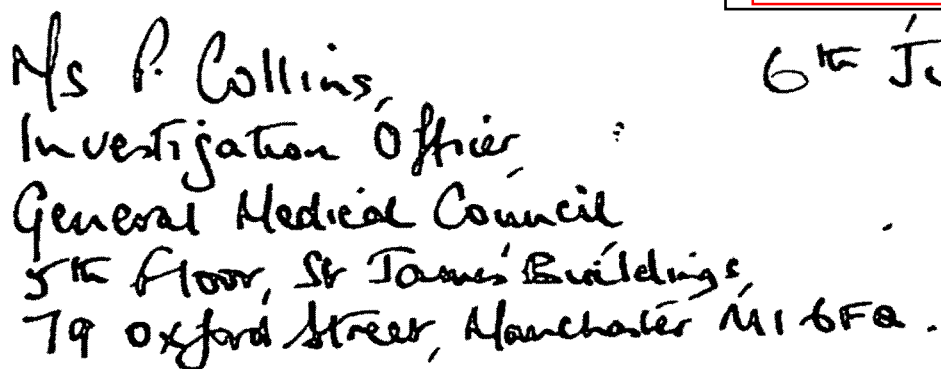 Ms P. Collins, 6th Ju
Investigation Officer
General Medical Council
5th Floor, St James' Buildings,
79 Oxford Street, Manchester M1 6FQ.